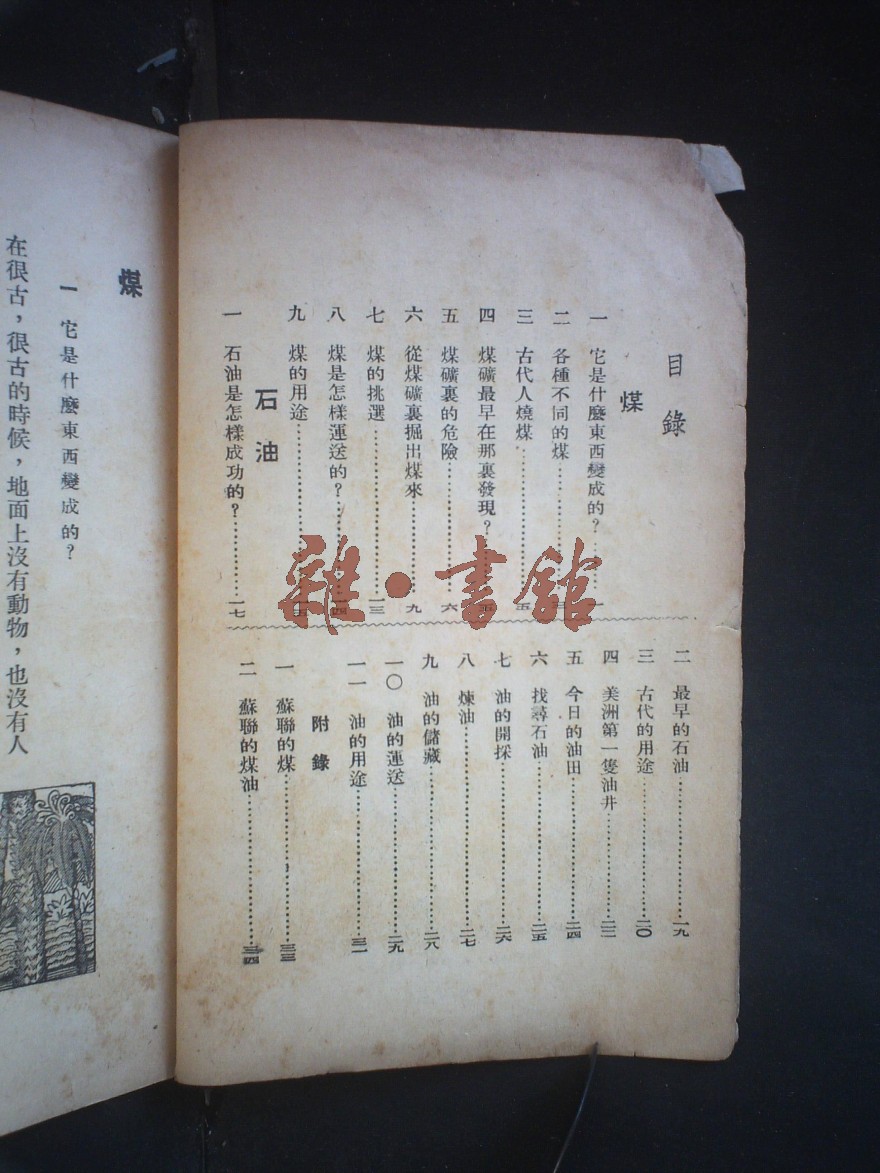 目錄
煤
一 它是什麼東西變成的?……一
二 各種不同的煤……三
三 古代人燒煤……五
四 煤礦最早在那裏發現?……
五 煤礦裏的危險……六
六 從煤礦裏掘出煤來……九
七 煤的挑選……一三
八 煤是怎樣運送的?……一四
九 煤的用途……
石油
一 石油是怎樣成功的?……一七
二 最早的石油……一九
三 古代的用途……二〇
四 美洲第一隻油井……二二
五 今日的油田……二四
六 找尋石油……二五
七 油的開採……二六
八 煉油……二七
九 油的儲藏……二八
一〇 油的運送……二九
一一 油的用途……三一
附錄
一 蘇聯的煤……三三
二 蘇聯的煤油……三四
煤
一 它是什麼東西變成的?
在很古,很古的時候,地面上沒有動物,也沒有人
雜·書館